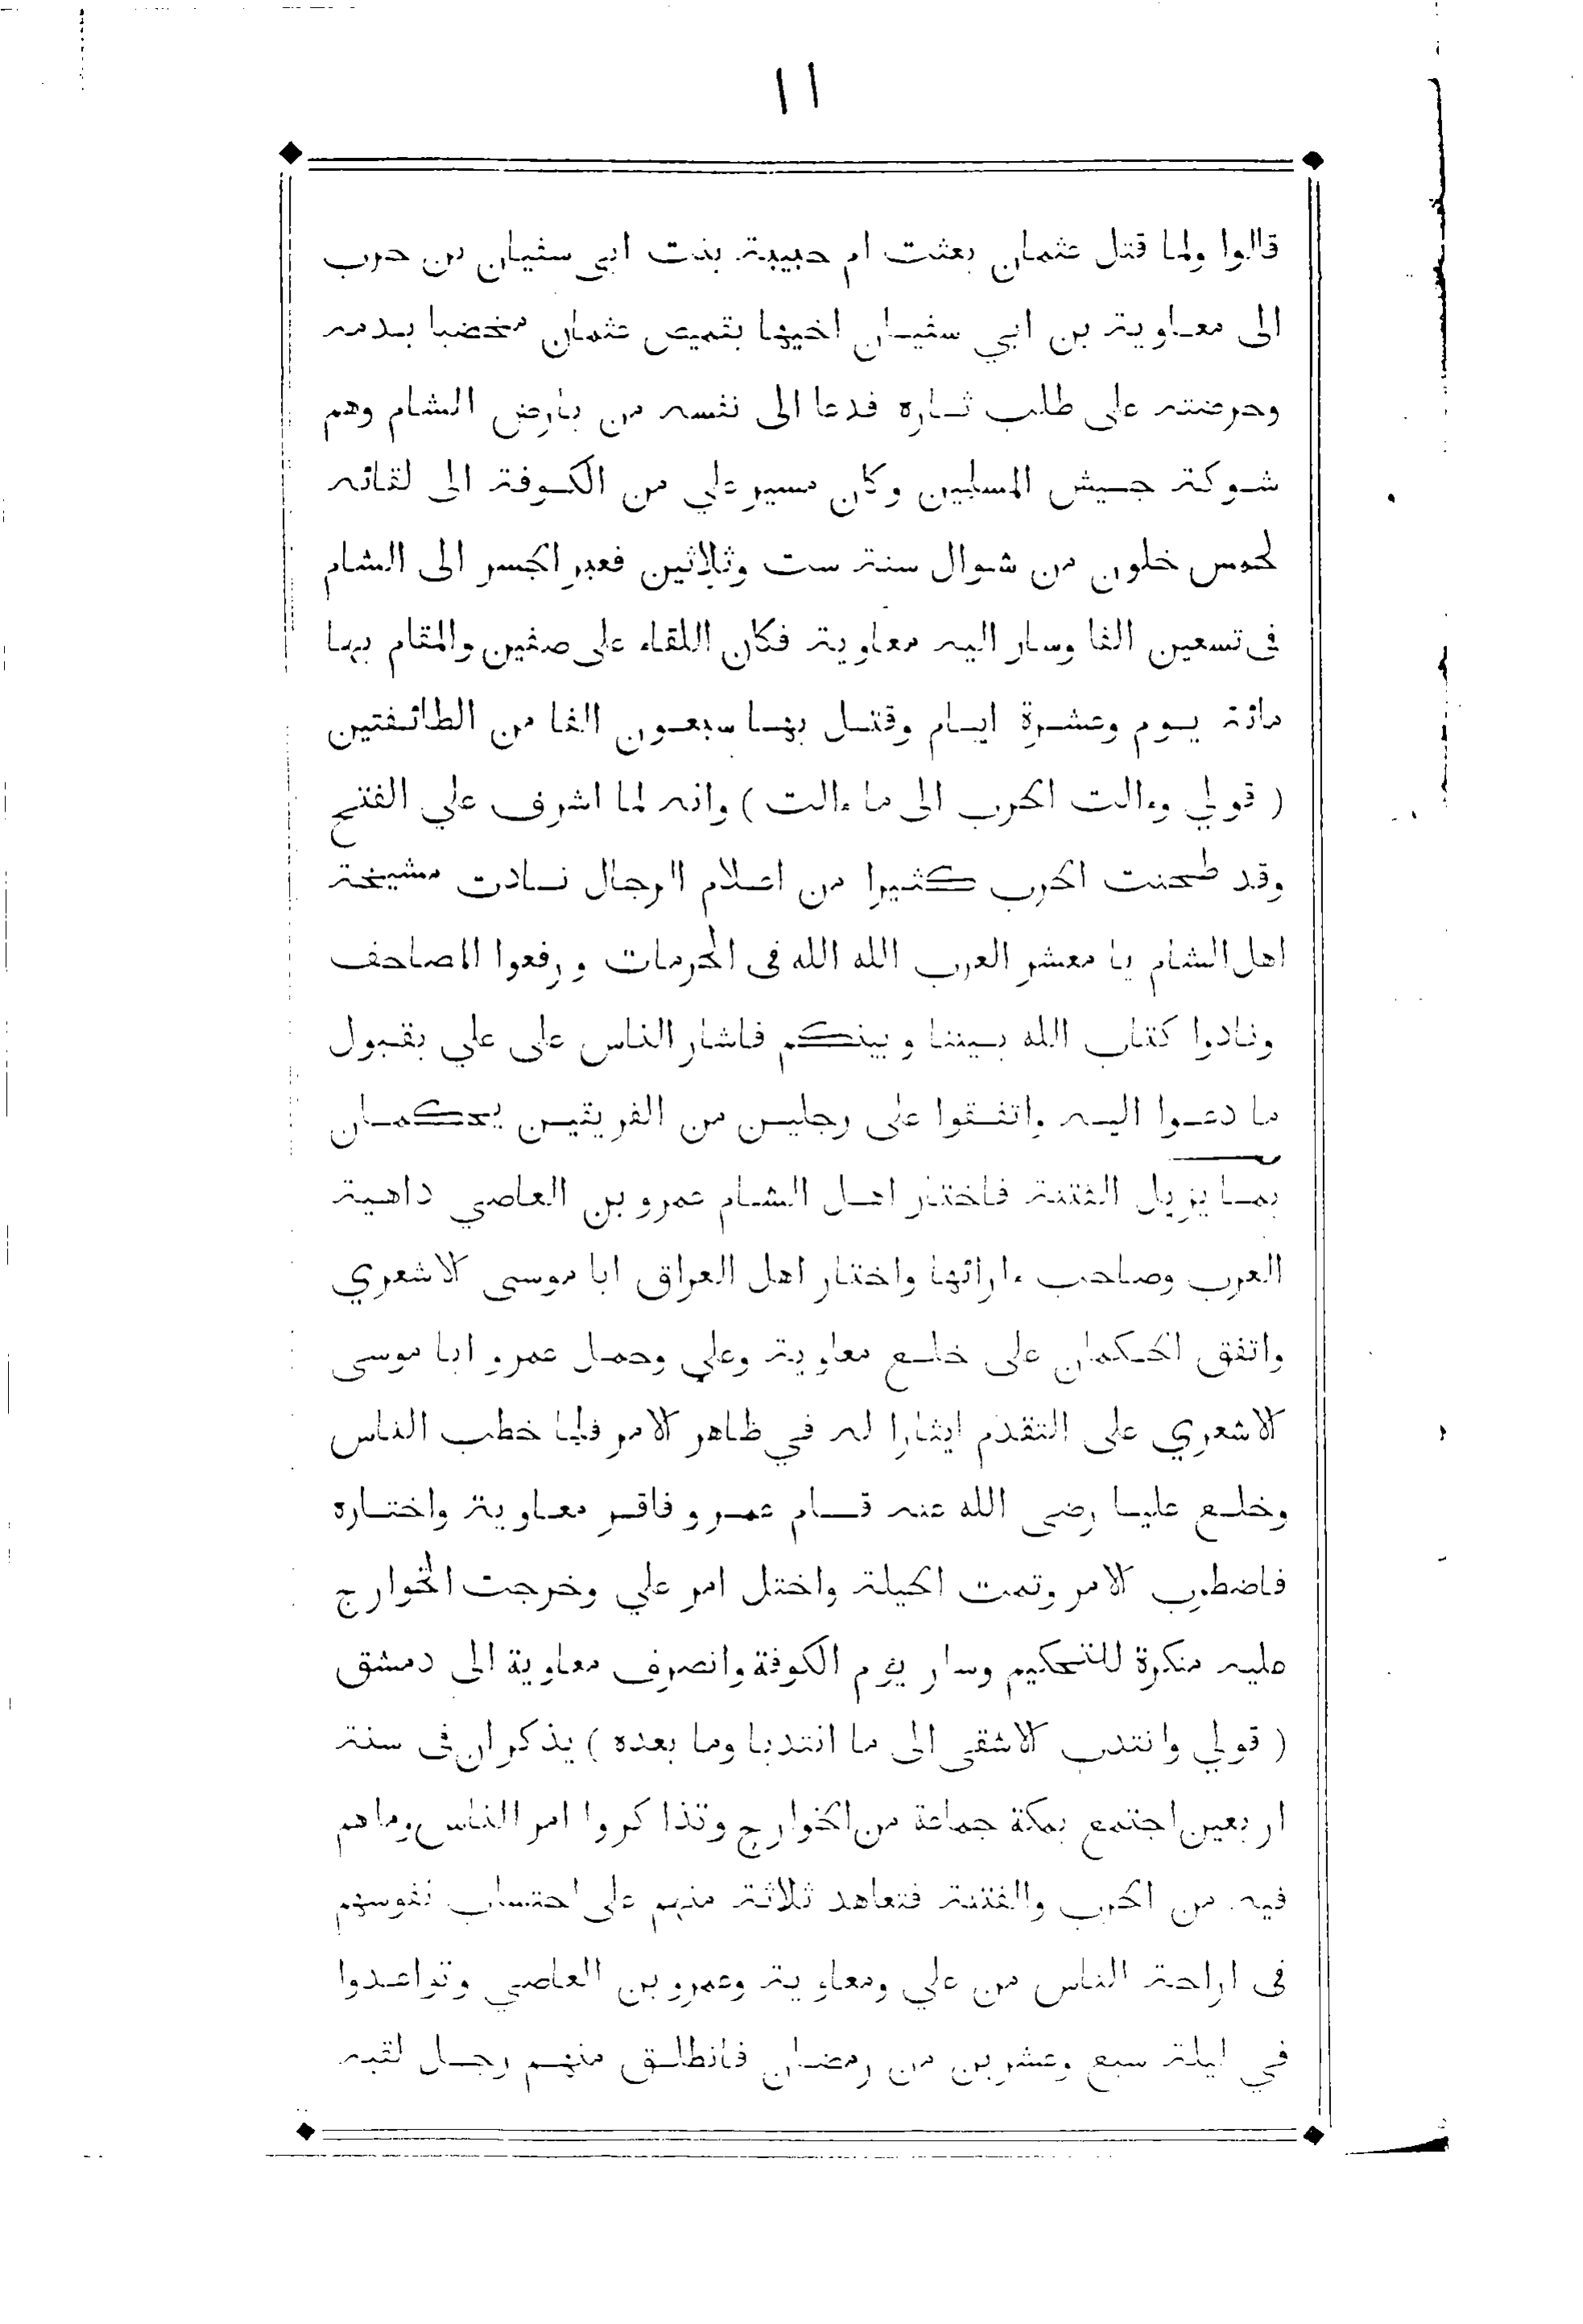 ١١
قالوا ولما قتل عثمان بعثت ام حبيبة بنت ابى سفيان بن حرب
الى معاوية بن ابي سفيان اخيها بقميص عثمان مخضبا بدمه
وحرضته على طلب ثاره فدعا الى نفسه من بارض الشام وهم
شوكة جيش المسلمين وكان مسير علي من الكوفة الى لقائه
لخمس خلون من شوال سنة ست وثلاثين فعبر الجسر الى الشام
فى تسعين الفا وسار اليه معاوية فكان اللقاء على صفين والمقام بها
مائة يوم وعشرة ايام وقتل بها سبعون الفا من الطائفتين
( قولي وءالت الحرب الى ما ءالت ) وانه لما اشرف علي الفتح
وقد طحنت الحرب كثيرا من اعلام الرجال نادت مشيخة
اهل الشام يا معشر العرب الله الله فى الحرمات ورفعوا المصاحف
ونادوا كتاب الله بيننا وبينكم فاشار الناس على علي بقبول
ما دعوا اليه واتفقوا على رجلين من الفريقين يحكمان
بما يزيل الفتنة فاختار اهل الشام عمرو بن العاصي داهية
العرب وصاحب ءارائها واختار اهل العراق ابا موسى الاشعري
واتفق الحكمان على خلع معاوية وعلي وحمل عمرو ابا موسى
الاشعري على التقدم ايثارا له في ظاهر الامر فلما خطب الناس
وخلع عليا رضى الله عنه قام عمرو فاقر معاوية واختاره
فاضطرب الامر وتمت الحيلة واختل امر علي وخرجت الخوارج
عليه منكرة للتحكيم وسار يؤم الكوفة وانصرف معاوية الى دمشق
( قولي وانتدب الاشقى الى ما انتدبا وما بعده ) يذكر ان فى سنة
اربعين اجتمع بمكة جماعة من الخوارج وتذاكروا امر الناس وما هم
فيه من الحرب والفتنة فتعاهد ثلاثة منهم على احتساب نفوسهم
فى اراحة الناس من علي ومعاوية وعمرو بن العاصي وتواعدوا
في ليلة سبع وعشرين من رمضان فانطلق منهم رجل لقبه